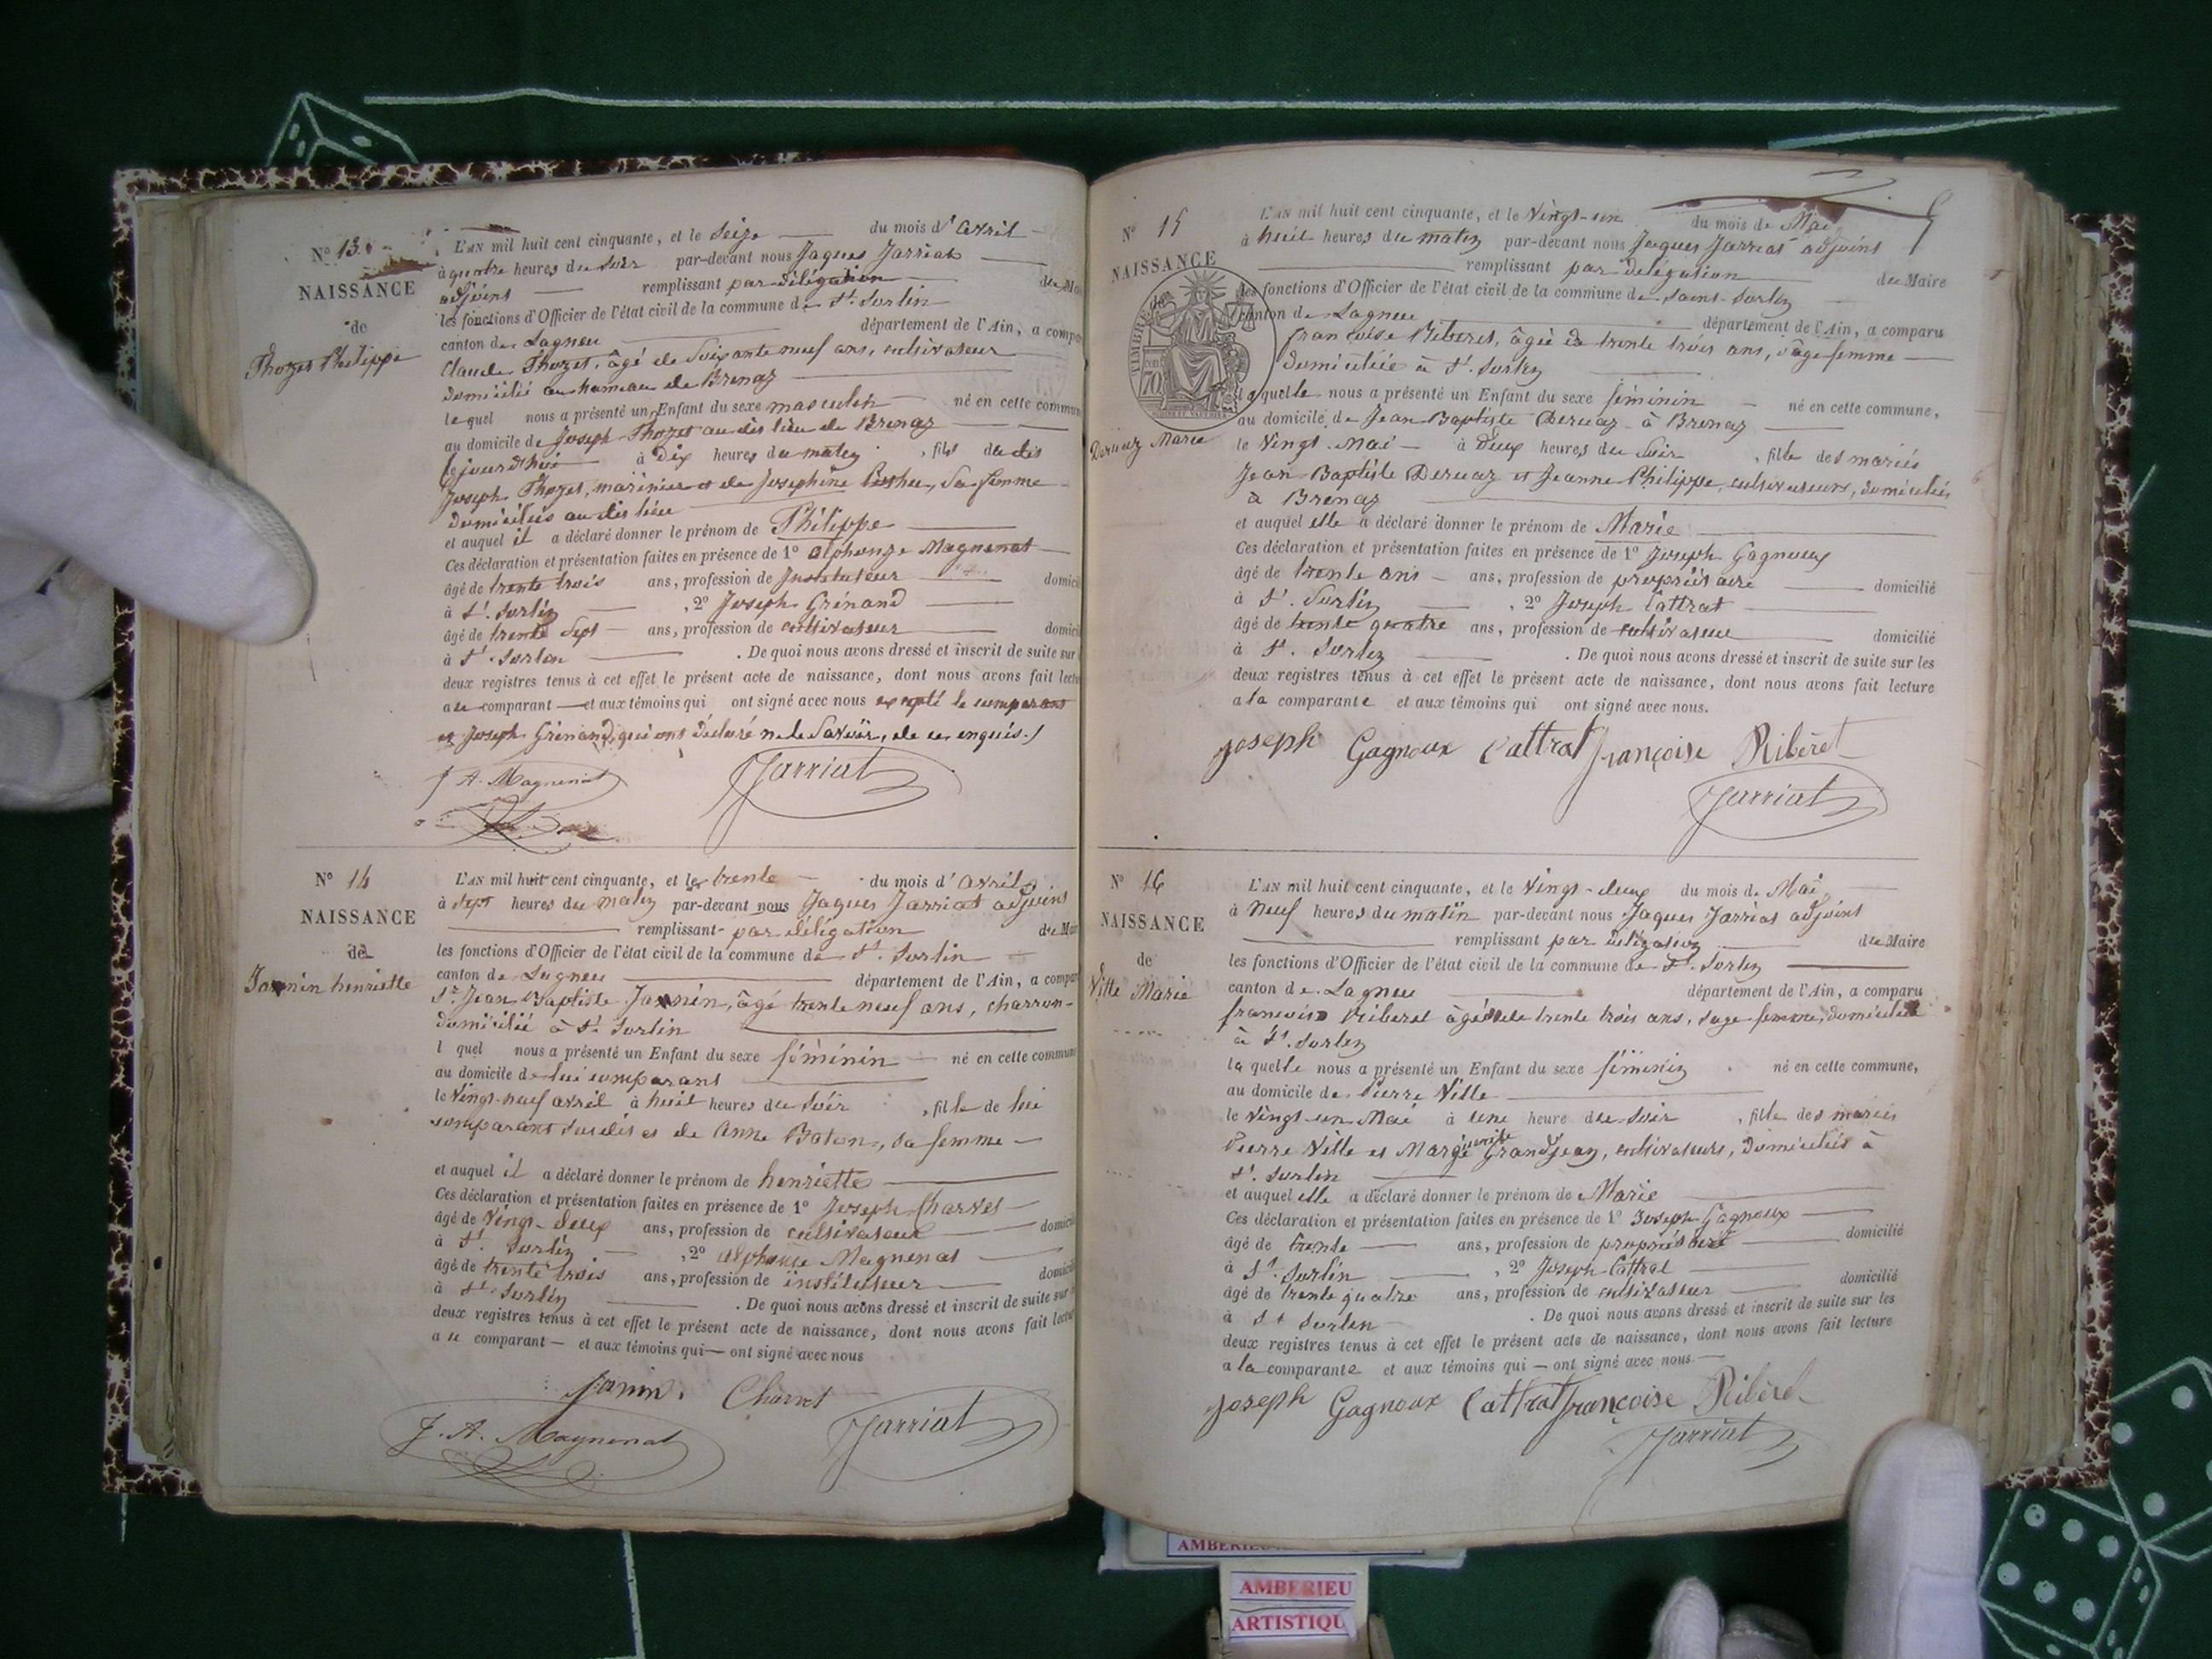 N° 13.
NAISSANCE
de
Thozet Philippe
L'AN mil huit cent cinquante, et le seize du mois d'avril
à quatre heures du soir par-devant nous Jaques Jarriat
adjoint remplissant par délégation du
les fonctions d'Officier de l'état civil de la commune de St. Sorlin
canton de Lagneu département de l'Ain, a
Claude Thozet, âgé de soixante neuf ans, cultivateur
domicilié au hameau de Brenaz
lequel nous a présenté un Enfant du sexe masculin né en cette
au domicile de Joseph Thozet au dit lieu de Brenaz
à Dix heures du matin, fils du dit
Joseph Thozet, marinier et de Josephine sa femme
domiciliés au dit lieu
et auquel il a déclaré donner le prénom de Philippe
Ces déclaration et présentation faites en présence de 1° alphonse Magnenat
âgé de trente trois ans, profession de Instituteur
à St. Sorlin, 2° Joseph Grinand
âgé de trente sept ans, profession de cultivateur
à St. Sorlin. De quoi nous avons dressé et inscrit de suite sur
deux registres tenus à cet effet le présent acte de naissance, dont nous avons fait
au comparant et aux témoins qui ont signé avec nous excepté le comparant
et Joseph Grinand, qui ont déclaré ne le savoir, de ce enquis./
J A. Magnenat Jarriat
N° 14
NAISSANCE
de
Jannin henriette
L'AN mil huit cent cinquante, et le trente du mois d'avril
à sept heures du matin par-devant nous Jaques Jarriat adjoint
remplissant par délégation du
les fonctions d'Officier de l'état civil de la commune de St. Sorlin
canton de Lagneu département de l'Ain, a
Sr. Jean Baptiste âgé trente neuf ans, charron
domicilié à St. Sorlin
l quel nous a présenté un Enfant du sexe féminin né en cette commune
au domicile de lui comparant
le vingt-neuf avril à huit heures du soir, fille de lui
comparant susdit et de Anne sa femme
et auquel il a déclaré donner le prénom de henriette
Ces déclaration et présentation faites en présence de 1° Joseph Charvet
âgé de vingt-deux ans, profession de cultivateur
à St. Sorlin, 2° alphonse Magnenat
âgé de trente trois ans, profession de instituteur
à St. Sorlin. De quoi nous avons dressé et inscrit de suite sur
deux registres tenus à cet effet le présent acte de naissance, dont nous avons fait
au comparant et aux témoins qui ont signé avec nous
Janin. Charvet
J. A. Magnenat Jarriat
N° 15
NAISSANCE
TIMBRE
70
Deruaz Marie
L'AN mil huit cent cinquante, et le vingt-un du mois de Mai
à huit heures du matin par-devant nous Jaques Jarriat adjoint
remplissant par délégation du Maire
les fonctions d'Officier de l'état civil de la commune de Saint-Sorlin
canton de Lagneu département de l'Ain, a comparu
françoise Riberet, âgée de trente trois ans, sage femme
domiciliée à St. Sorlin
laquelle nous a présenté un Enfant du sexe féminin né en cette commune,
au domicile de Jean Baptiste Deruaz à Brenaz
le vingt Mai à deux heures du soir, fille des mariés
Jean Baptiste Deruaz et Jeanne Philippe, cultivateurs, domiciliés
à Brenaz
et auquel elle a déclaré donner le prénom de Marie
Ces déclaration et présentation faites en présence de 1° Joseph Gagnoux
âgé de trente ans ans, profession de propriétaire domicilié
à St. Sorlin, 2° Joseph Cattrat
âgé de trente quatre ans, profession de cultivateur domicilié
à St. Sorlin. De quoi nous avons dressé et inscrit de suite sur les
deux registres tenus à cet effet le présent acte de naissance, dont nous avons fait lecture
a la comparante et aux témoins qui ont signé avec nous.
joseph Gagnoux Cattrat françoise Ribèret
Jarriat
N° 16
NAISSANCE
de
Ville Marie
L'AN mil huit cent cinquante, et le vingt-deux du mois de Mai
à neuf heures du matin par-devant nous Jaques Jarriat adjoint
remplissant par délégation du Maire
les fonctions d'Officier de l'état civil de la commune de St. Sorlin
canton de Lagneu département de l'Ain, a comparu
Riberet âgée de trente trois ans, sage femme, domiciliée
à St. Sorlin
la quelle nous a présenté un Enfant du sexe féminin né en cette commune,
au domicile de Pierre Ville
le vingt-un Mai à une heure du soir, fille des mariés
Pierre Ville et Marguerite Grandjean, cultivateurs, domiciliés à
St. Sorlin
et auquel elle a déclaré donner le prénom de Marie
Ces déclaration et présentation faites en présence de 1° Joseph Gagnoux
âgé de trente ans, profession de propriétaire domicilié
à St. Sorlin, 2° Joseph Cattrat
âgé de trente quatre ans, profession de cultivateur domicilié
à St Sorlin. De quoi nous avons dressé et inscrit de suite sur les
deux registres tenus à cet effet le présent acte de naissance, dont nous avons fait lecture
a la comparante et aux témoins qui ont signé avec nous.
joseph Gagnoux Cattrat françoise Ribèret
Jarriat
AMBERIEU
ARTISTIQU